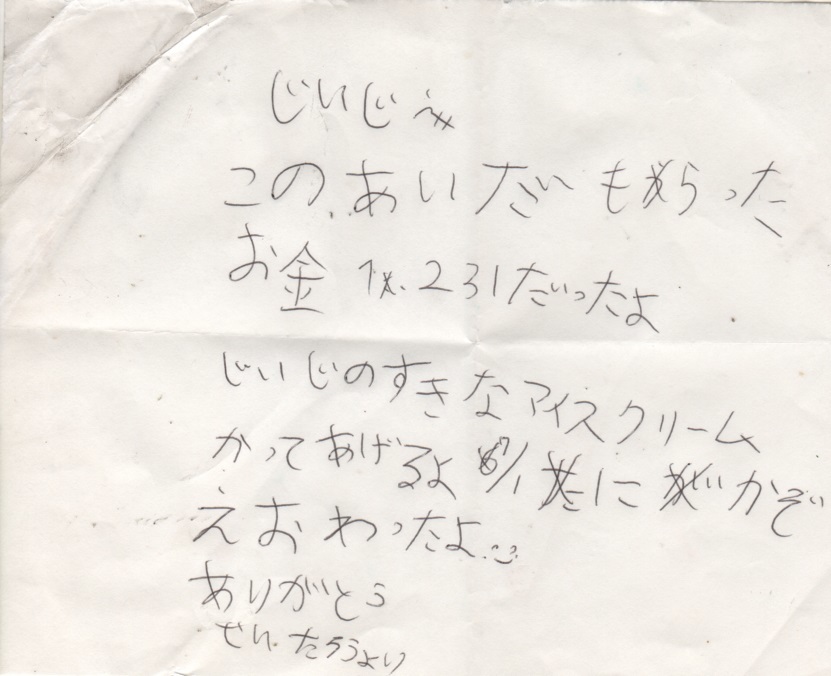 じいじへ
このあいだもらった
お金 1.231だったよ
じいじのすきなアイスクリーム
かってあげるよ 7/1にかぞ
えおわったよ
ありがとう
ぜんたろうより